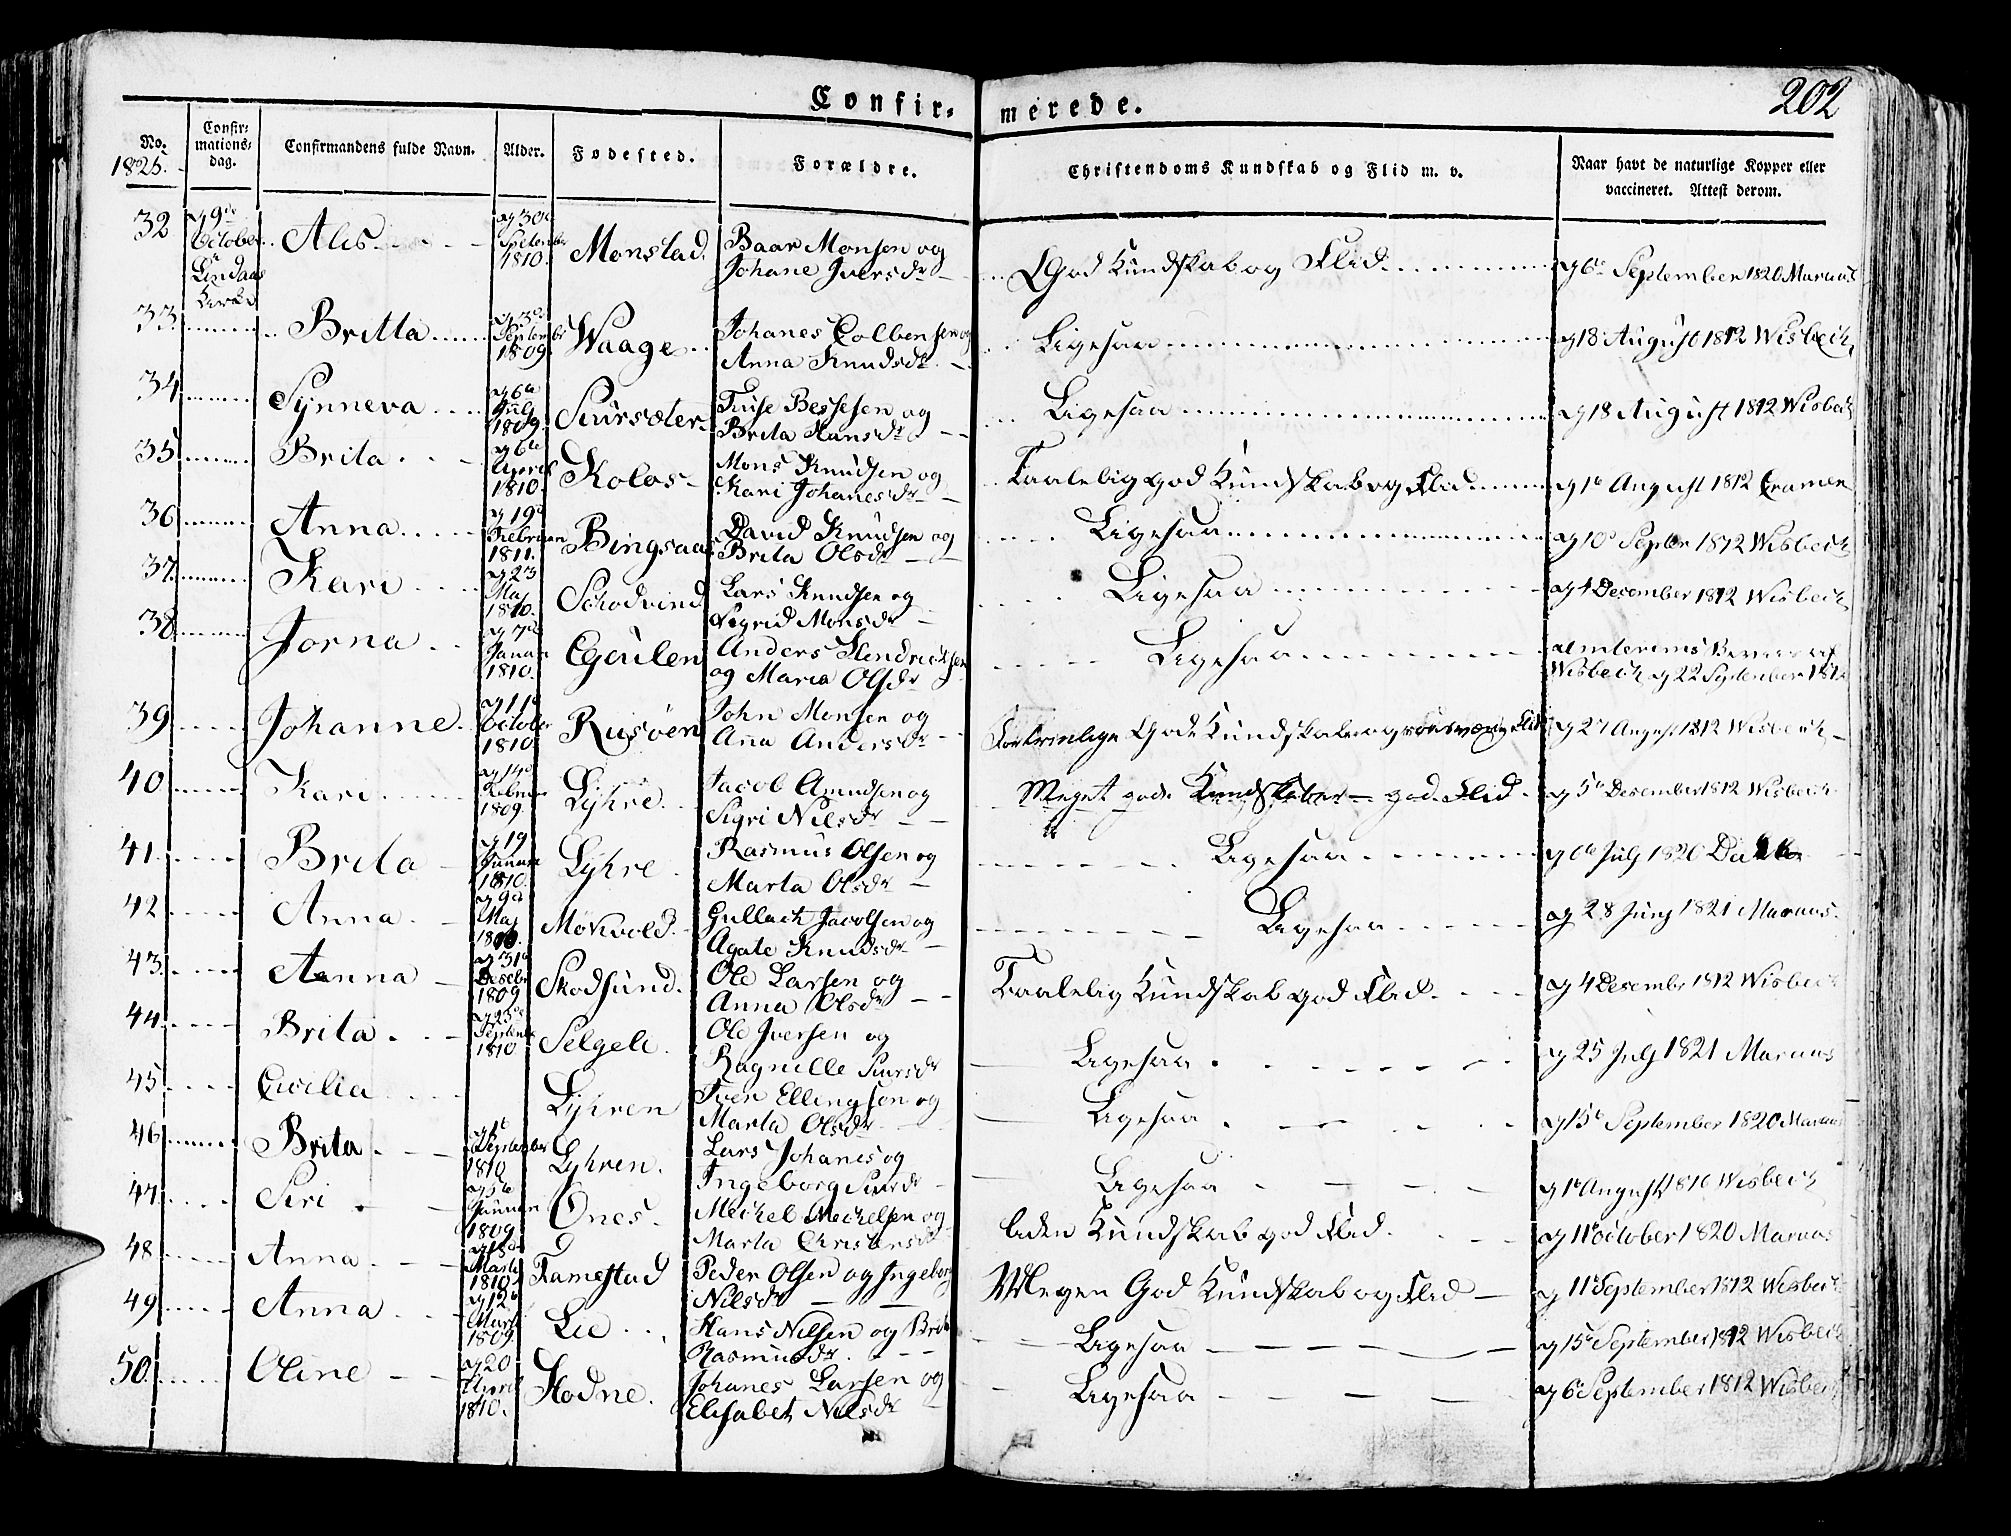 Confir-
merede.
202
No.
1825.
Confir-
mations-
dag.
Confirmandens fulde Navn.
Alder.
Fødested.
Forældre.
Christendoms Kundskab og Flid m. v.
Naar havt de naturlige Kopper eller
vaccineret. Attest derom.
32
9de
October
Lindaas
Kirke
Alis
30
1810.
Monstad.
Baar Monsen og
Johane Iversdr
God Kundskab og Flid
September 1820 Maraus
33
Britta
September
1809.
Waage
Johanes Colbensen og
Anna Knudsdr
Ligesaa
18 August 1812 Wisbech
34
Synneva
July
1809.
Siursæter
Bessesen og
Brita Hansdr
Ligesaa
18 August 1812 Wisbech
35
Brita
April
1810.
Kolos
Mons Knudsen og
Kari Johanesdr
Taalelig god Kundskab og Flid
August 1812 Cramer
36
Anna
19
Februar
1811.
Bingsaa
David Knudsen og
Brita Olsdr
Ligesaa
10 Septbr 1812 Wisbech
37
Kari
23
Maj
1810.
Schodvind
Lars Knudsen og
Sigrid Monsdr
Ligesaa
4 December 1812 Wisbech
38
Jorna
7
Januar
1810.
Egeulen
Anders Hendrichsen
og Maria Olsdr
Ligesaa
Wisbech 22 September 1812
39
Johanne
11
October
1810.
Risøen
John Monsen og
Anna Andersdr
Gode Kundskaber og Flid
27 August 1812 Wisbech
40
Kari
14
1809.
Lyhre
Jacob Amundsen og
Sigri Nilsdr
Meget gode Kundskaber – god Flid
5 December 1812 Wisbech
41
Brita
19
Januar
1810.
Lyhre
Rasmus Olsen og
Marta Olsdr
Ligesaa
July 1820
42
Anna
9
Maj
Mohvold
Gullach Jacobsen og
Agate Knudsdr
Ligesaa
28 Juny 1821 Maraus.
43
Anna
31
Desebr
1809
Skodsund.
Ole Larsen og
Anna Olsdr
Taalelig Kundskab god Flid.
4 Desembr 1812 Wisbech
44
Brita
23
Septembr
1810
Selgeli.
Ole Iversen og
Ragnille Siursdr
Ligesaa
25 July 1821 Maraus
45
Cicilia
Lyhren
Iver Ellingsen og
Marta Olsdr
Ligesaa
15 September 1820 Maraus
46
Brita
September
1810
Lyhren.
Lars Johanes og
Ingeborg Siursdr
Ligesaa
August 1810 Wisbech
47
Siri
Januar
1809.
Ones.
Meichel Meichelsen og
Marta Christensdr
liden Kundskab god Flid.
11 October 1820 Maraus
48
Anna
18
Marts
1810.
Famestad
Peder Olsen og Ingeborg
Nilsdr
Megen God Kundskab og Flid
11 September 1812 Wisbech
49
Anna
12
Marts
1809
Lie
Hans Nilsen og Brite
Rasmusdr.
Ligesaa
15 September 1812 Wisbech
50
Oline
20
April
1810.
Hodne.
Johanes Larsen og
Elisabet Nilsdr
Ligesaa
6 September 1812 Wisbech